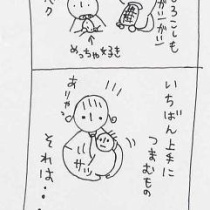 ろこしも
パク
めっちゃ好き
いちばん上手に
つまむもの
ありゃっ
サッ
それは・・・